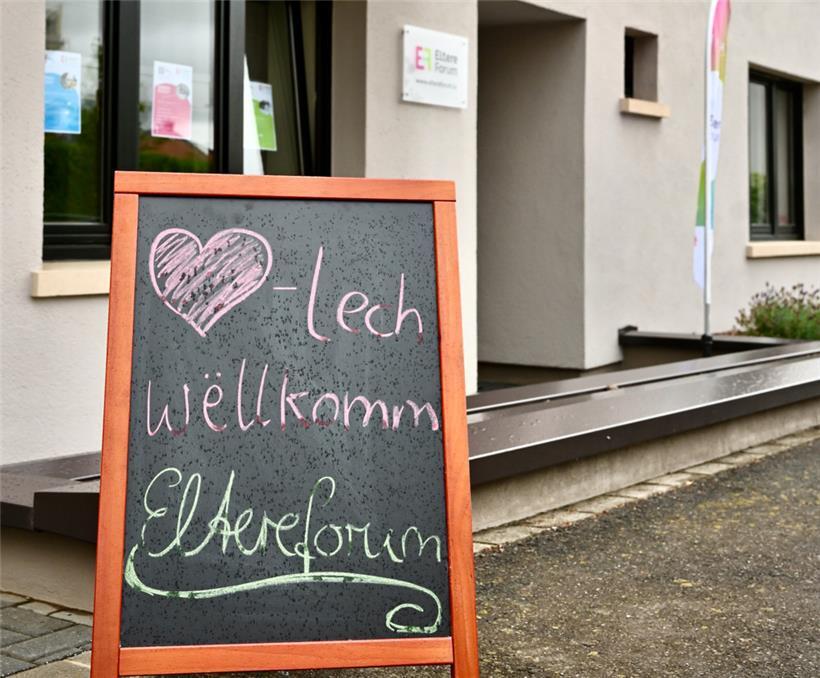 Eltere
Forum
www.eltereforum.lu
♥-lech
wëllkomm
Eltereforum